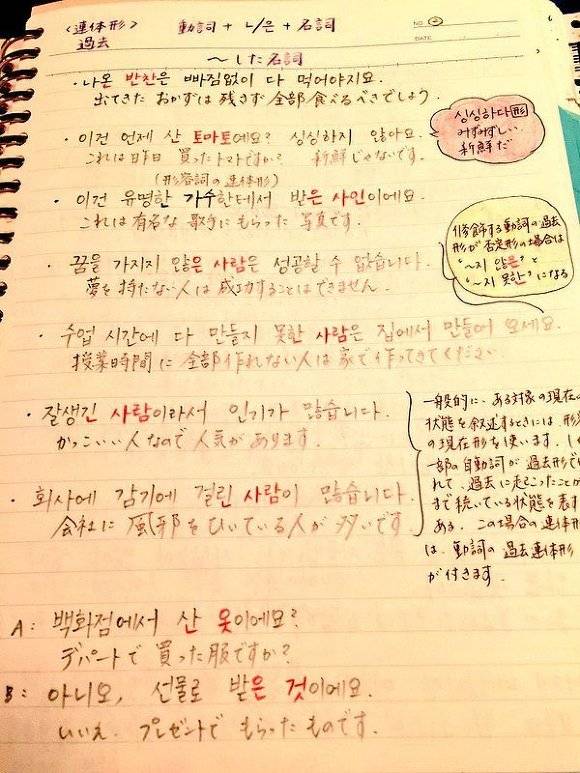 <連体形> 動詞 + ㄴ/은 + 名詞
NO.
過去
DATE
〜した名詞
・나온 반찬은 빠짐없이 다 먹어야지요.
出てきた おかずは 残さず 全部 食べるべきでしょう.
・이건 언제 산 토마토예요? 싱싱하지 않아요.
これは 昨日 買ったトマトですか? 新鮮じゃないです.
(形容詞の連体形)
싱싱하다 形
みずみずしい
新鮮だ
・이건 유명한 가수한테서 받은 사인이에요.
これは 有名な 歌手に もらった 写真です.
・꿈을 가지지 않은 사람은 성공할 수 없습니다.
夢を 持たない 人は 成功することは できません.
修飾する動詞の過去
形が否定形の場合は
"〜지 않은" と
"〜지 못한" になる
・수업 시간에 다 만들지 못한 사람은 집에서 만들어 오세요.
授業時間に 全部 作れない 人は 家で 作ってきてください.
・잘생긴 사람이라서 인기가 많습니다.
かっこいい 人なので 人気が あります.
・회사에 감기에 걸린 사람이 많습니다.
会社に 風邪をひいている人が 多いです.
一般的に、ある対象の現在の
状態を叙述するときには、形
の現在形を使います。し
一部の自動詞が 過去形で
れて、過去に起こったことが
まで続いている状態を表す
ある. この場合の連体形
は、動詞の過去連体形
が付きます.
A: 백화점에서 산 옷이에요?
デパートで 買った 服ですか?
B: 아니오, 선물로 받은 것이에요.
いいえ. プレゼントで もらった ものです.